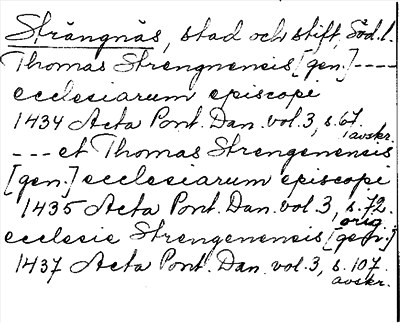 Strängnäs, stad och stift, Söd.l.
Thomas Strengnensis [gen.] ----
ecclesiarum episcopi
1434 Acta Pont. Dan. vol. 3, s. 67.
avskr.
--- et Thomas Strengenensis
[gen.] ecclesiarum episcopi
1435 Acta Pont. Dan. vol. 3, s. 72.
orig.
ecclesie Strengenensis [gen.]
1437 Acta Pont. Dan. vol. 3, s. 107.
avskr.